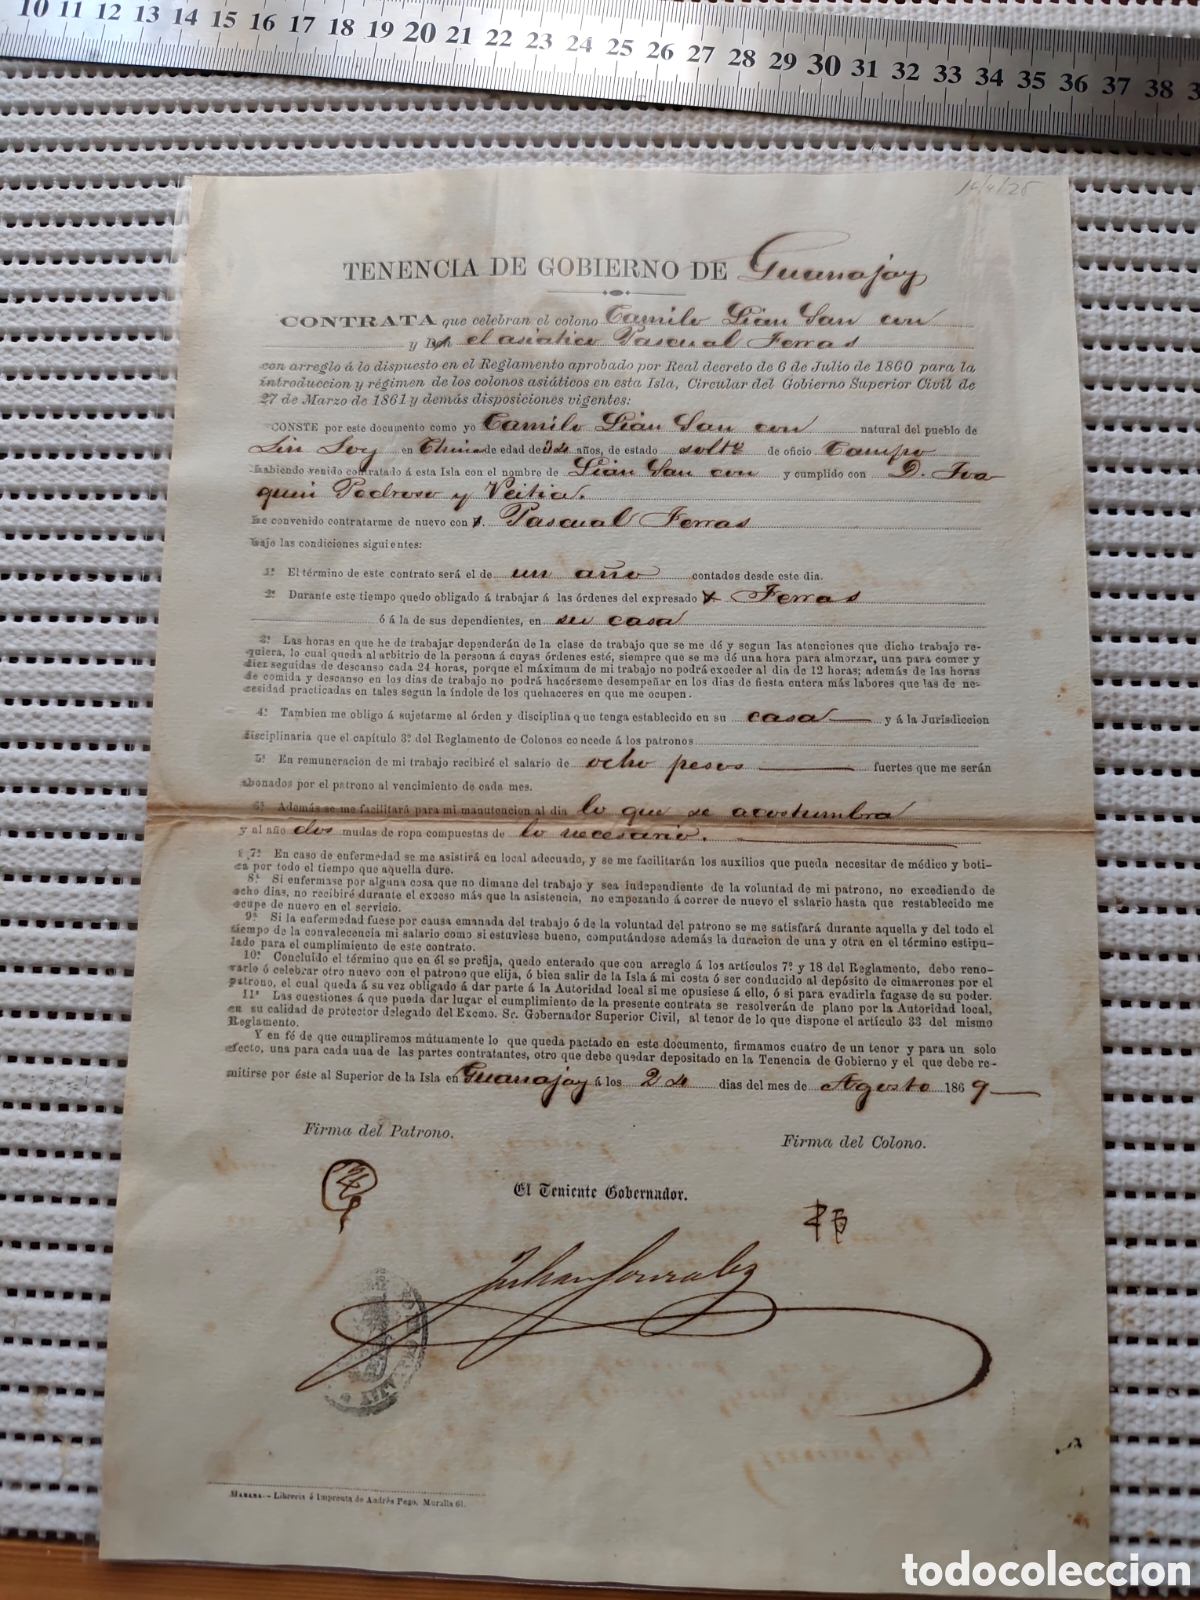 10 11 12 13 14 15 16 17 18 19 20 21 22 23 24 25 26 27 28 29 30 31 32 33 34 35 36 37 38
TENENCIA DE GOBIERNO DE Guanajay
CONTRATA que celebran el colono Camilo Lián San con
y el asiatico Pascual Ferras
con arreglo á lo dispuesto en el Reglamento aprobado por Real decreto de 6 de Julio de 1860 para la
introduccion y régimen de los colonos asiáticos en esta Isla, Circular del Gobierno Superior Civil de
27 de Marzo de 1861 y demás disposiciones vigentes:
CONSTE por este documento como yo Camilo Lián San con natural del pueblo de
en China de edad de 34 años, de estado solto de oficio Campo
habiendo venido contratado á esta Isla con el nombre de Lián San con y cumplido con D. Joa
quin Pedroso y Veitia.
he convenido contratarme de nuevo con Pascual Ferras
bajo las condiciones siguientes:
1ª El término de este contrato será el de un año contados desde este dia.
2ª Durante este tiempo quedo obligado á trabajar á las órdenes del expresado Ferras
ó á la de sus dependientes, en su casa
3ª Las horas en que he de trabajar dependerán de la clase de trabajo que se me dé y segun las atenciones que dicho trabajo re-
quiera, lo cual queda al arbitrio de la persona á cuyas órdenes esté, siempre que se me dé una hora para almorzar, una para comer y
diez seguidas de descanso cada 24 horas, porque el máximum de mi trabajo no podrá exceder al dia de 12 horas; además de las horas
de comida y descanso en los dias de trabajo no podrá hacérseme desempeñar en los dias de fiesta entera más labores que las de ne-
cesidad practicadas en tales segun la índole de los quehaceres en que me ocupen.
4ª Tambien me obligo á sujetarme al órden y disciplina que tenga establecido en su casa y á la Jurisdiccion
disciplinaria que el capítulo 3º del Reglamento de Colonos concede á los patronos
5ª En remuneracion de mi trabajo recibiré el salario de ocho pesos fuertes que me serán
abonados por el patrono al vencimiento de cada mes.
6ª Además se me facilitará para mi manutencion al dia lo que se acostumbra
y al año dos mudas de ropa compuestas de lo necesario.
7ª En caso de enfermedad se me asistirá en local adecuado, y se me facilitarán los auxilios que pueda necesitar de médico y boti-
ca por todo el tiempo que aquella dure.
8ª Si enfermase por alguna cosa que no dimane del trabajo y sea independiente de la voluntad de mi patrono, no excediendo de
ocho dias, no recibiré durante el exceso más que la asistencia, no empezando á correr de nuevo el salario hasta que restablecido me
ocupe de nuevo en el servicio.
9ª Si la enfermedad fuese por causa emanada del trabajo ó de la voluntad del patrono se me satisfará durante aquella y del todo el
tiempo de la convalecencia mi salario como si estuviese bueno, computándose además la duracion de una y otra en el término estipu-
lado para el cumplimiento de este contrato.
10ª Concluido el término que en él se prefija, quedo enterado que con arreglo á los artículos 7º y 18 del Reglamento, debo reno-
varlo ó celebrar otro nuevo con el patrono que elija, ó bien salir de la Isla á mi costa ó ser conducido al depósito de cimarrones por el
patrono, el cual queda á su vez obligado á dar parte á la Autoridad local si me opusiese á ello, ó si para evadirla fugase de su poder.
11ª Las cuestiones á que pueda dar lugar el cumplimiento de la presente contrata se resolverán de plano por la Autoridad local,
en su calidad de protector delegado del Excmo. Sr. Gobernador Superior Civil, al tenor de lo que dispone el artículo 33 del mismo
Reglamento.
Y en fé de que cumpliremos mútuamente lo que queda pactado en este documento, firmamos cuatro de un tenor y para un solo
efecto, una para cada una de las partes contratantes, otro que debe quedar depositado en la Tenencia de Gobierno y el que debe re-
mitirse por éste al Superior de la Isla en Guanajay á los 24 dias del mes de Agosto 1869
Firma del Patrono.
Firma del Colono.
El Teniente Gobernador.
Julian Gonzalez
HABANA.—Librería é Imprenta de Andrés Pego, Muralla 61.
todocoleccion